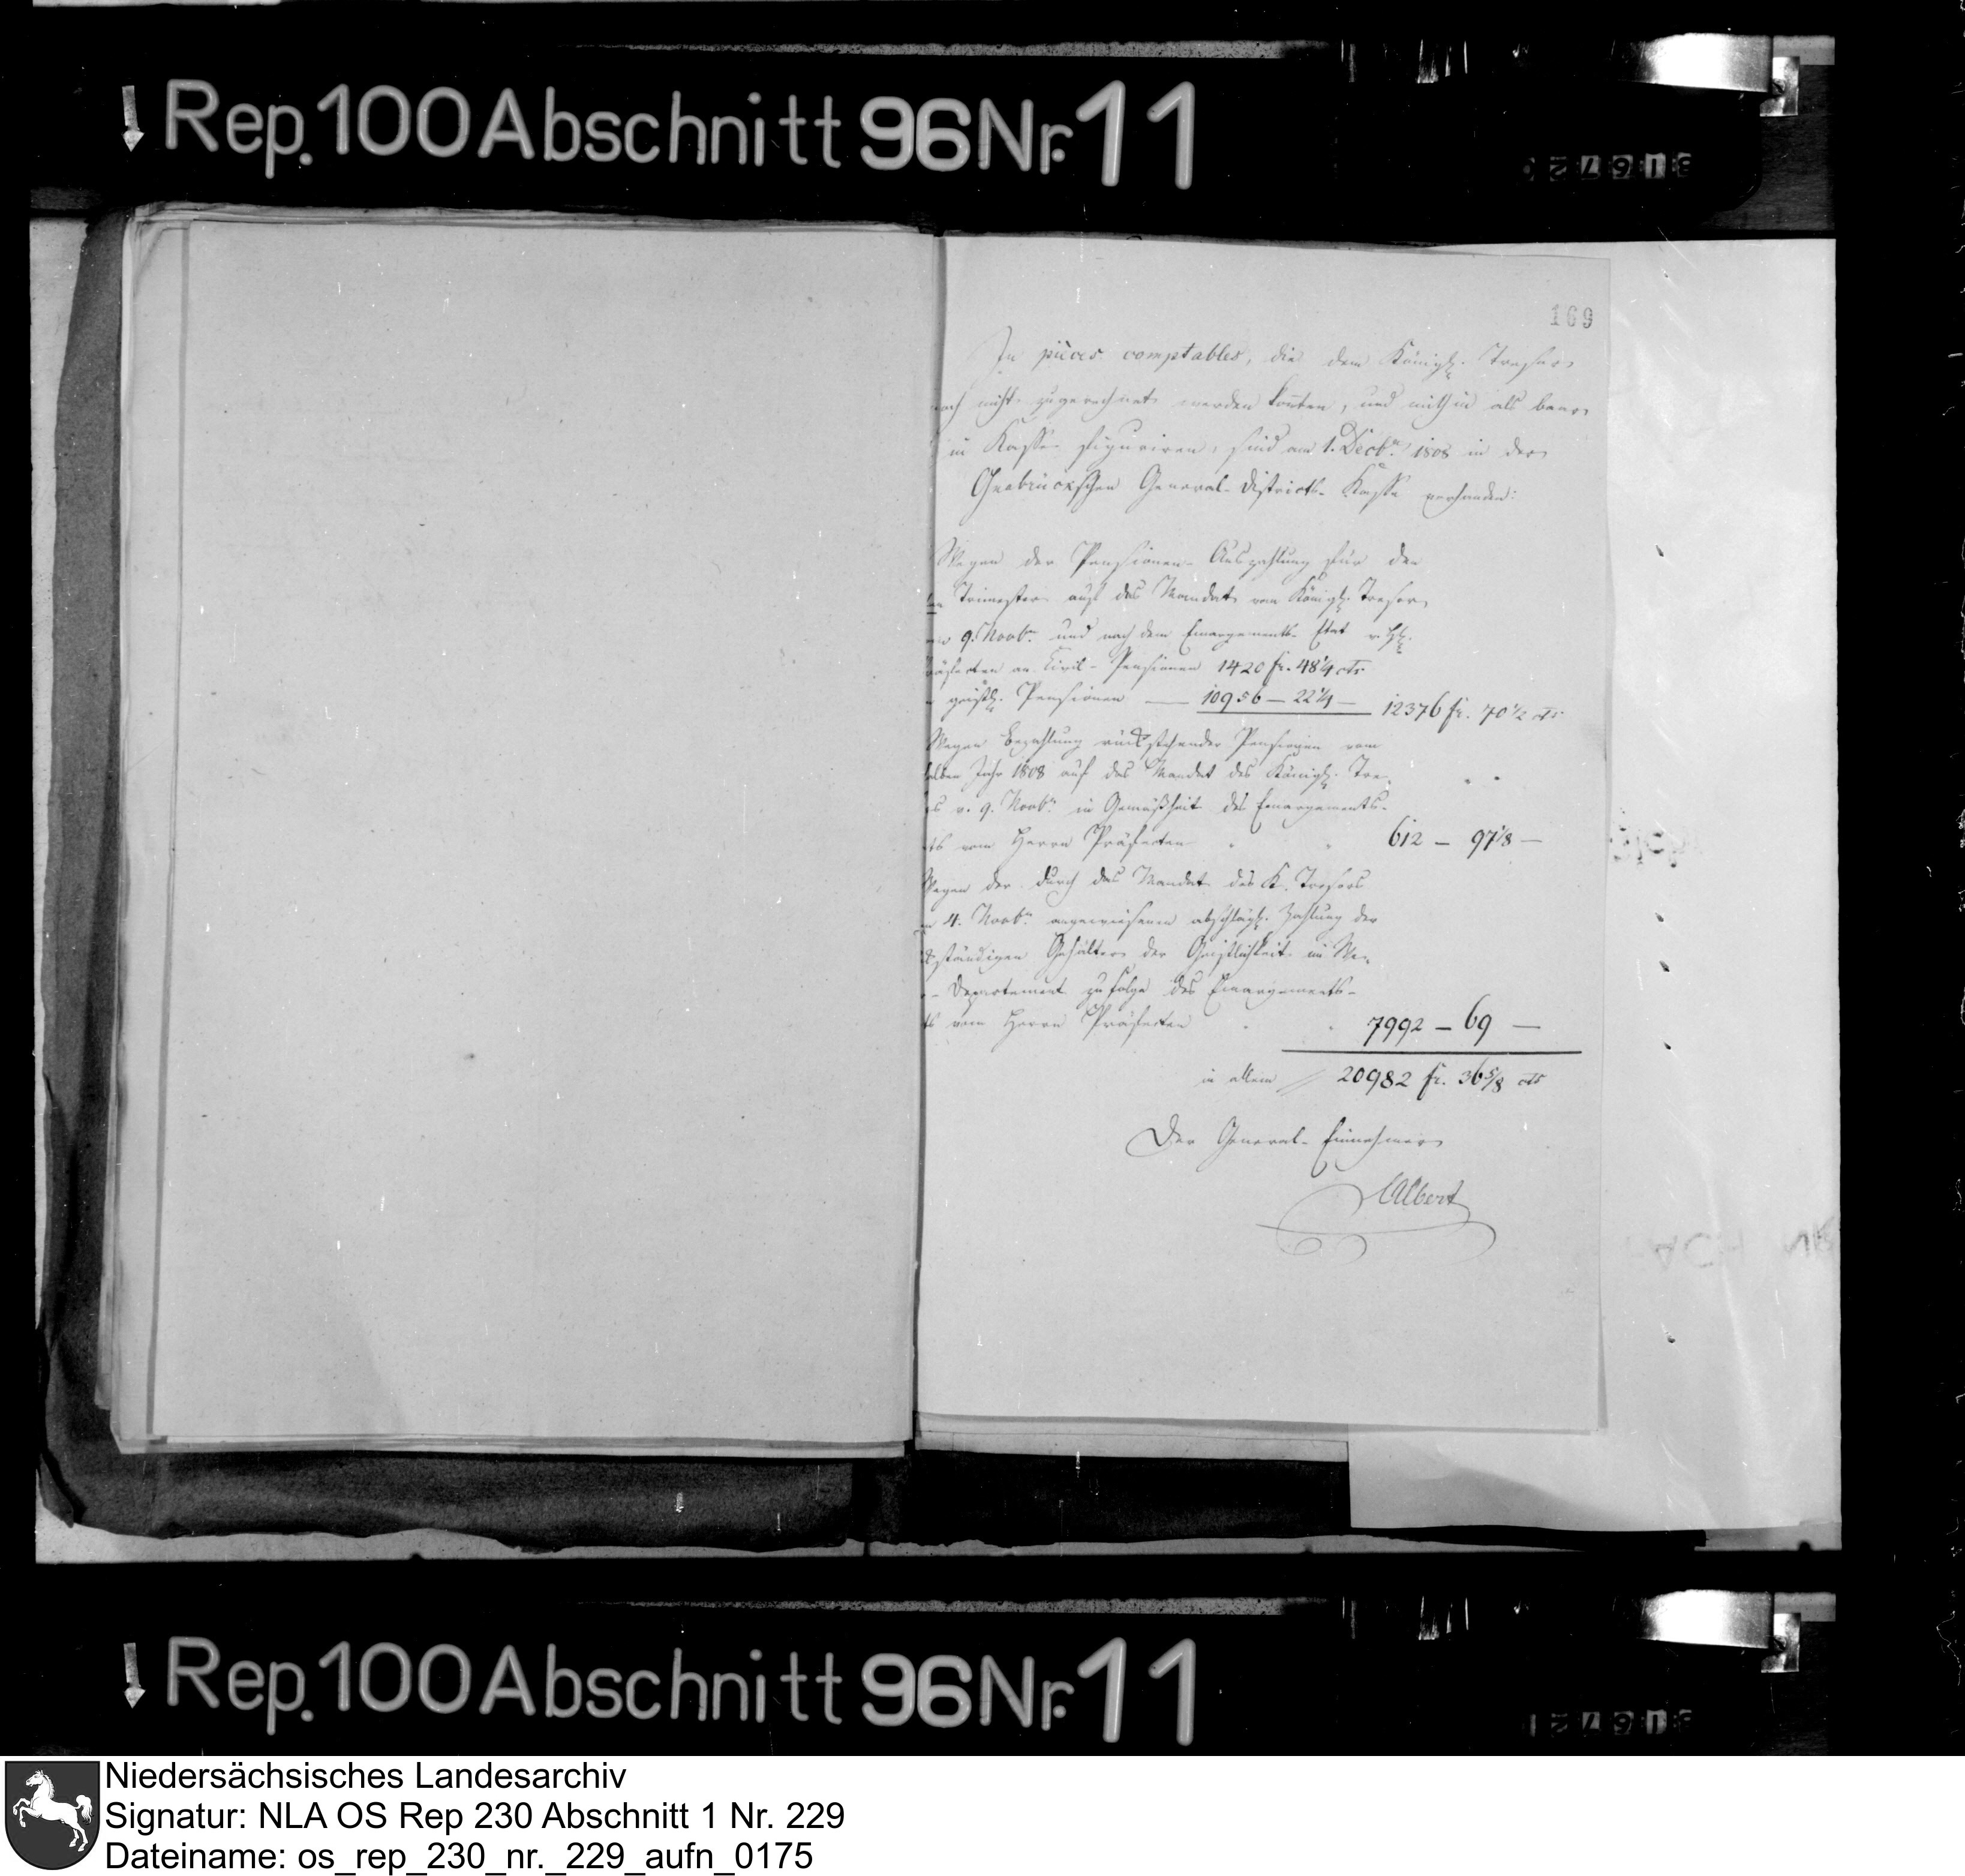 Rep. 100 Abschnitt 96 Nr. 11
169
In pièces comptables, die dem Königl. Tresor
noch nicht zugerechnet werden konten, und mithin als baar
in Kasse figuriren, sind am 1. Decbr. 1808 in der
Osnabrückschen General-Districts-Kasse vorhanden:
Wegen der Pensionen-Auszahlung für den
Trimester auf das Mandat vom Königl. Tresor
9. Novbr. und nach dem Emargements-Etat v. H.
Präfecten an Civil-Pensionen 1420 fr. 48 1/4 cts
geistl. Pensionen — 10956 — 22 1/4 — 12376 fr. 70 1/2 cts
Wegen Bezahlung rückstehender Pensionen vom
halben Jahr 1808 auf das Mandat des Königl. Tre-
v. 9. Novbr. in Gemäßheit des Emargements-
vom Herrn Präfecten 612 — 97 1/8 —
Wegen der durch das Mandat des K. Tresors
4. Novbr. angewiesenen abschlägl. Zahlung der
ständigen Gehälter der Geistlichkeit im We-
Departement zufolge des Emargements-
vom Herrn Präfecten 7992 — 69 —
in allem 20982 fr. 36 5/8 cts
Der General-Einnehmer
Albert
Rep. 100 Abschnitt 96 Nr. 11
Niedersächsisches Landesarchiv
Signatur: NLA OS Rep 230 Abschnitt 1 Nr. 229
Dateiname: os_rep_230_nr._229_aufn_0175